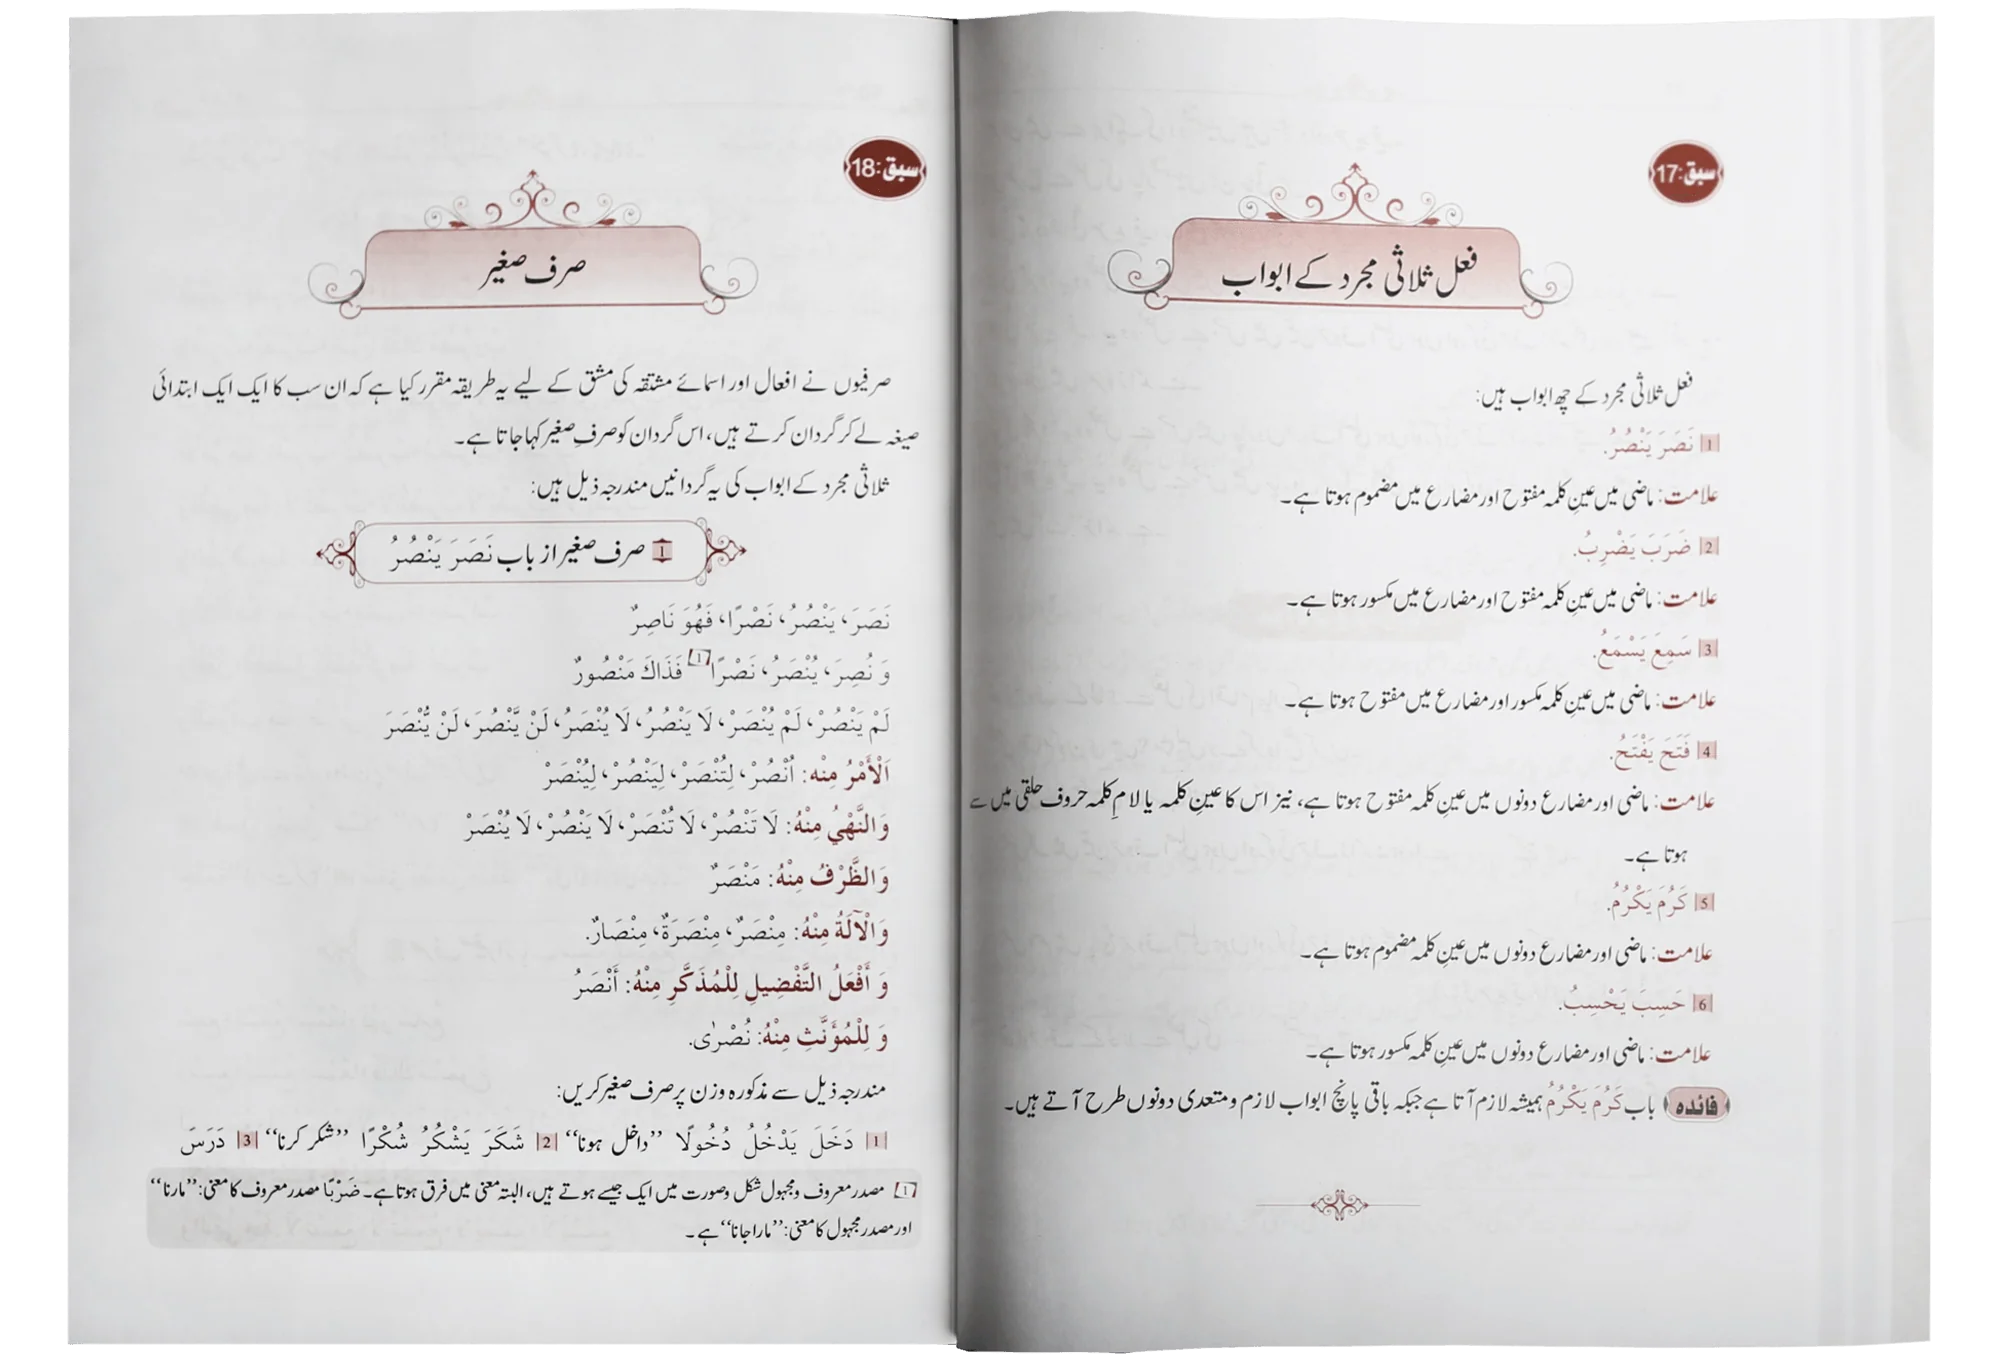 سبق:17
فعل ثلاثی مجرد کے ابواب
فعل ثلاثی مجرد کے چھ ابواب ہیں:
1 نَصَرَ یَنْصُرُ.
علامت: ماضی میں عینِ کلمہ مفتوح اور مضارع میں مضموم ہوتا ہے۔
2 ضَرَبَ یَضْرِبُ.
علامت: ماضی میں عینِ کلمہ مفتوح اور مضارع میں مکسور ہوتا ہے۔
3 سَمِعَ یَسْمَعُ.
علامت: ماضی میں عینِ کلمہ مکسور اور مضارع میں مفتوح ہوتا ہے۔
4 فَتَحَ یَفْتَحُ.
علامت: ماضی اور مضارع دونوں میں عینِ کلمہ مفتوح ہوتا ہے، نیز اس کا عینِ کلمہ یا لامِ کلمہ حروف حلقی میں سے
ہوتا ہے۔
5 کَرُمَ یَکْرُمُ.
علامت: ماضی اور مضارع دونوں میں عینِ کلمہ مضموم ہوتا ہے۔
6 حَسِبَ یَحْسِبُ.
علامت: ماضی اور مضارع دونوں میں عینِ کلمہ مکسور ہوتا ہے۔
فائدہ باب کَرُمَ یَکْرُمُ ہمیشہ لازم آتا ہے جبکہ باقی پانچ ابواب لازم و متعدی دونوں طرح آتے ہیں۔
سبق:18
صرف صغیر
صرفیوں نے افعال اور اسمائے مشتقہ کی مشق کے لیے یہ طریقہ مقرر کیا ہے کہ ان سب کا ایک ایک ابتدائی
صیغہ لے کر گردان کرتے ہیں، اس گردان کو صرفِ صغیر کہا جاتا ہے۔
ثلاثی مجرد کے ابواب کی یہ گردانیں مندرجہ ذیل ہیں:
1 صرف صغیر از باب نَصَرَ یَنْصُرُ
نَصَرَ، یَنْصُرُ، نَصْرًا، فَهُوَ نَاصِرٌ
وَ نُصِرَ، یُنْصَرُ، نَصْرًا 1 فَذَاكَ مَنْصُورٌ
لَمْ یَنْصُرْ، لَمْ یُنْصَرْ، لَا یَنْصُرُ، لَا یُنْصَرُ، لَنْ یَّنْصُرَ، لَنْ یُّنْصَرَ
اَلْأَمْرُ مِنْه: اُنْصُرْ، لِتُنْصَرْ، لِیَنْصُرْ، لِیُنْصَرْ
وَالنَّهْيُ مِنْهُ: لَا تَنْصُرْ، لَا تُنْصَرْ، لَا یَنْصُرْ، لَا یُنْصَرْ
وَالظَّرْفُ مِنْهُ: مَنْصَرٌ
وَالْآلَةُ مِنْهُ: مِنْصَرٌ، مِنْصَرَةٌ، مِنْصَارٌ.
وَ أَفْعَلُ التَّفْضِیلِ لِلْمُذَكَّرِ مِنْهُ: أَنْصَرُ
وَ لِلْمُؤَنَّثِ مِنْهُ: نُصْرٰی.
مندرجہ ذیل سے مذکورہ وزن پر صرف صغیر کریں:
1 دَخَلَ یَدْخُلُ دُخُولًا ”داخل ہونا“ 2 شَکَرَ یَشْکُرُ شُکْرًا ”شکر کرنا“ 3 دَرَسَ
1 مصدر معروف و مجہول شکل وصورت میں ایک جیسے ہوتے ہیں، البتہ معنی میں فرق ہوتا ہے۔ ضَرْبًا مصدر معروف کا معنی: ”مارنا“
اور مصدر مجہول کا معنی: ”مارا جانا“ ہے۔